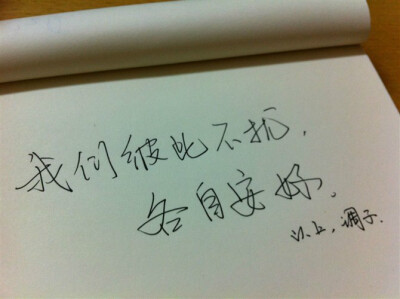 我们彼此不扰，
各自安好.
以上，调子.